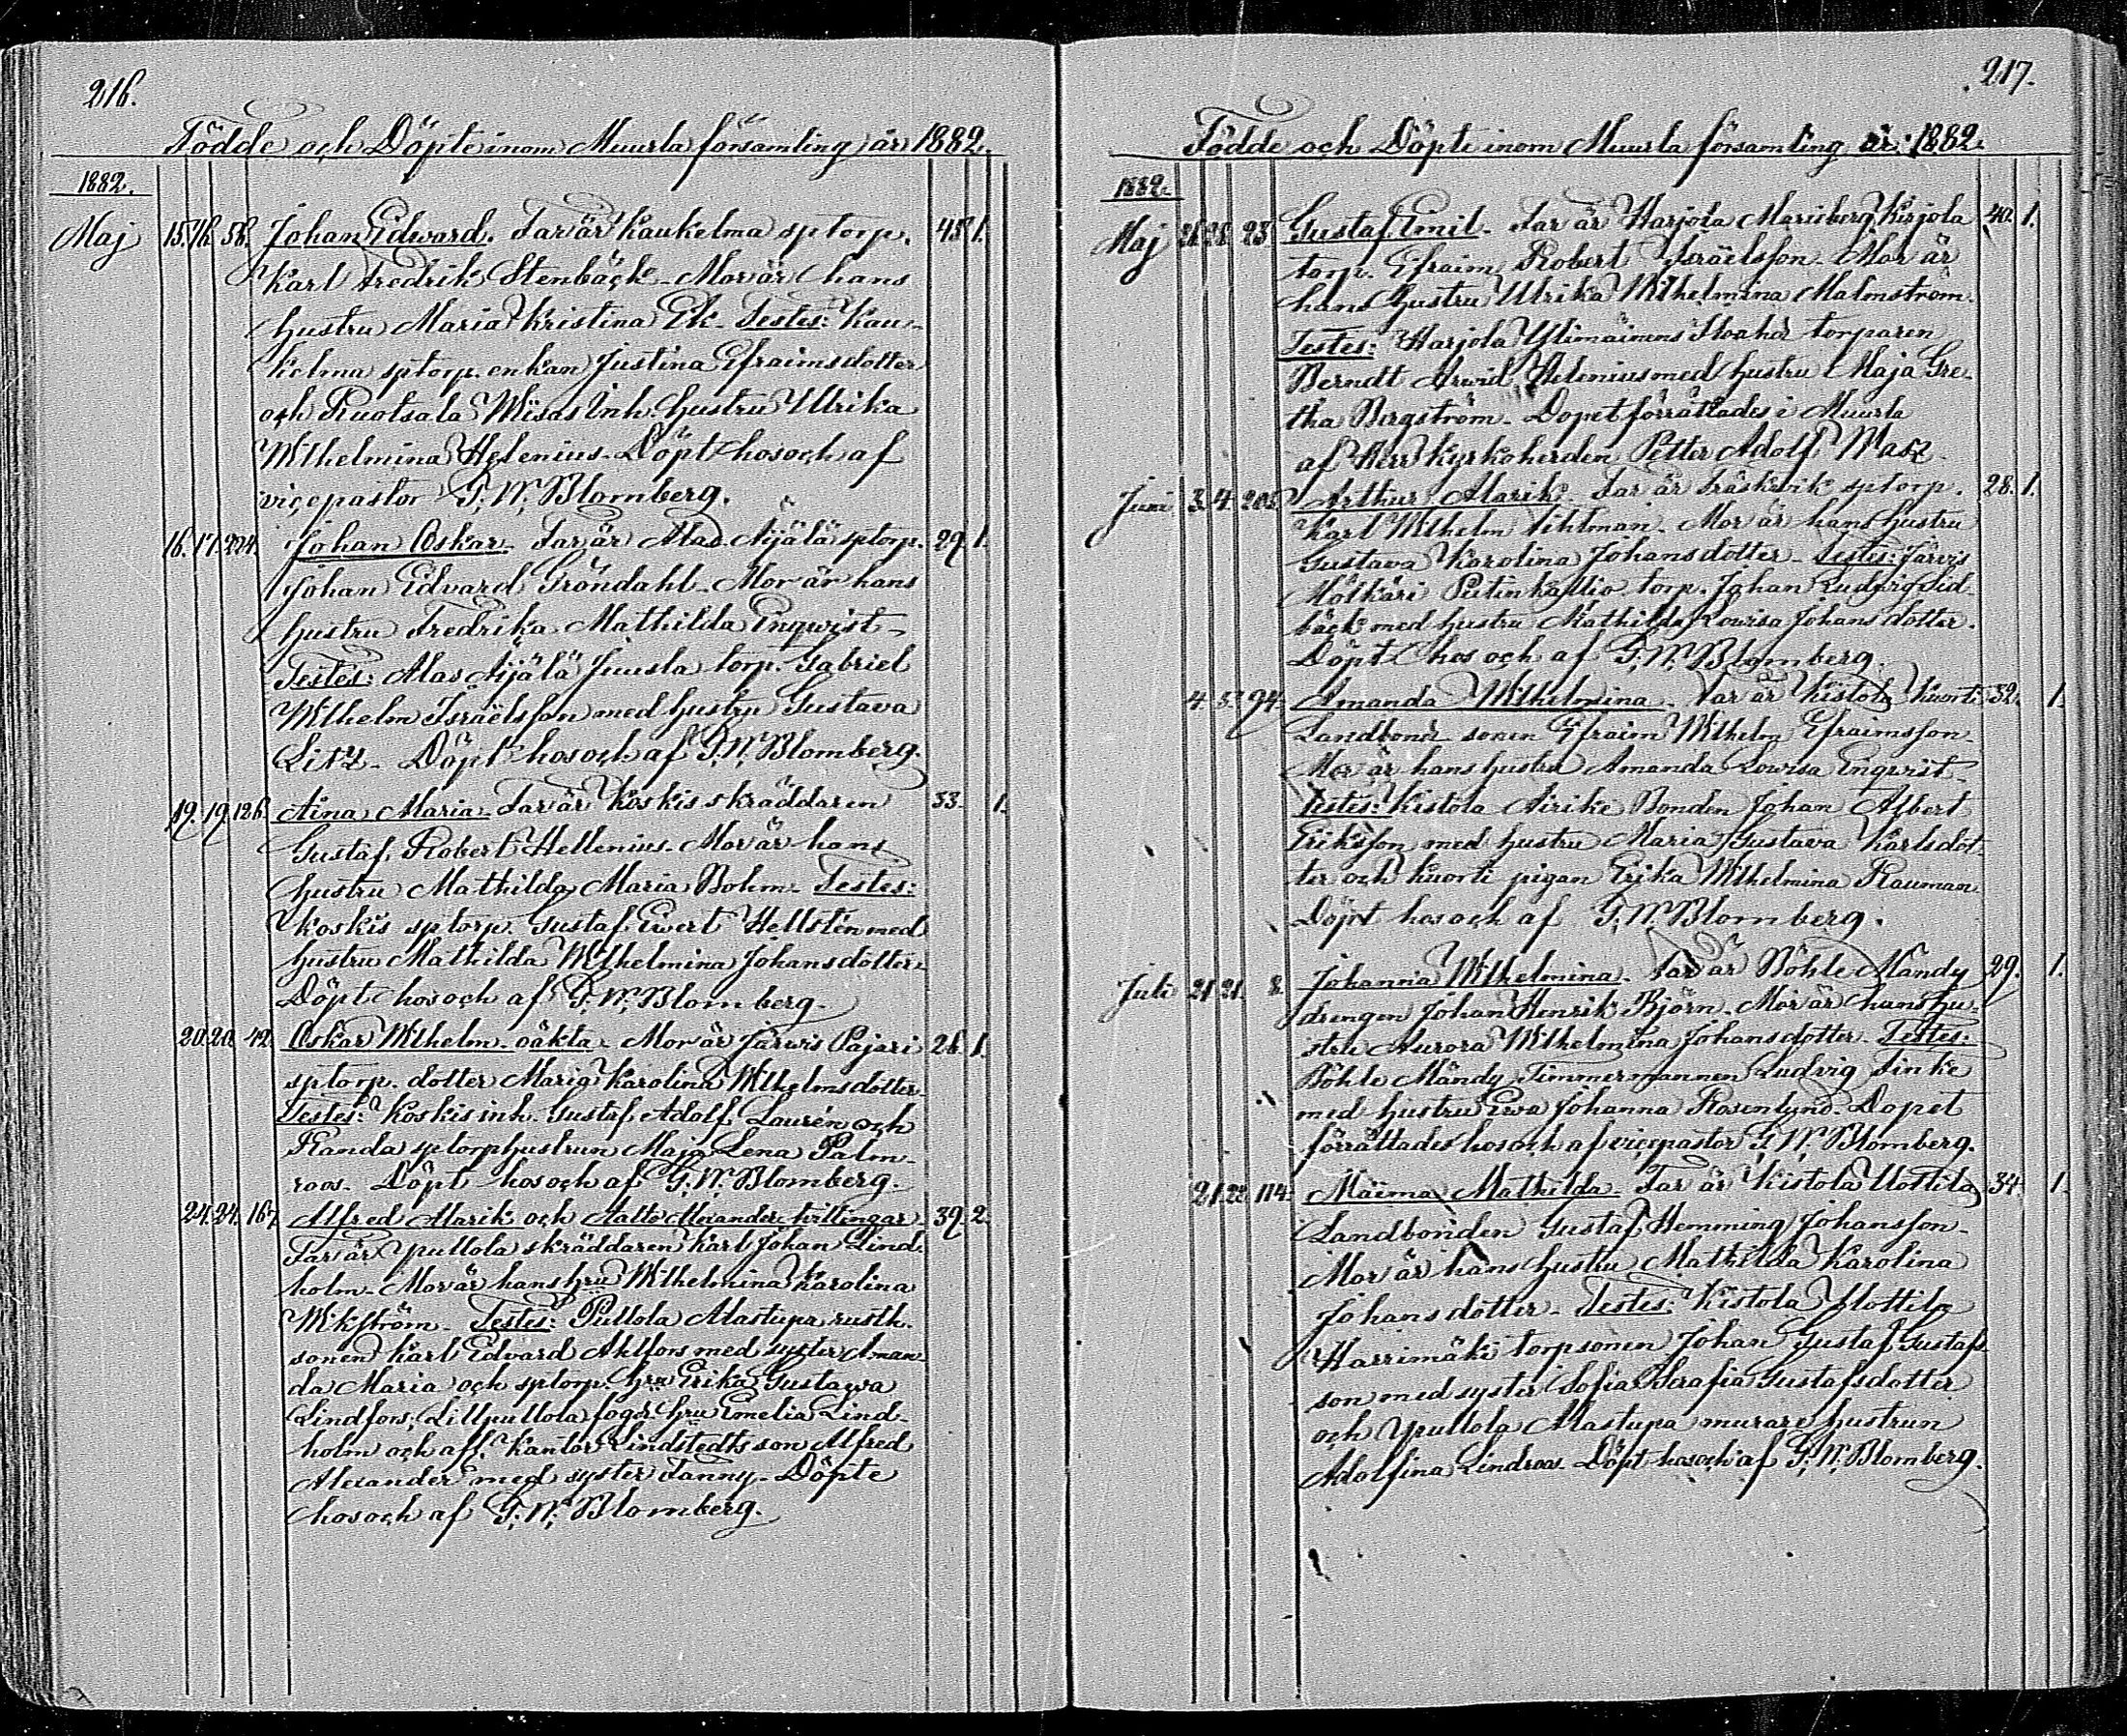 216.
Födde och Döpte inom Muurla församling år 1882.
1882.
Maj 15. 16. 56. Johan Edward. Far är Kaukelma sptorp. 45. 1.
Karl Fredrik Stenbäck. Mor är hans
hustru Maria Kristina Ek. Testes: Kau-
kelma sptorp. enkan Justina Efraimsdotter
och Ruotsala Wisas Inh. hustru Ulrika
Wilhelmina Helenius. Döpt hos och af
vicepastor G. W. Blomberg.
16. 17. 224. Johan Oskar. Far är Alas Aijälä sptorp. 29. 1.
Johan Edvard Gröndahl. Mor är hans
hustru Fredrika Mathilda Enqwist.
Testes: Alas Aijälä Juusla torp. Gabriel
Wilhelm Israëlsson med hustru Gustava
Litz. Döpt hos och af G. W. Blomberg.
19. 19. 126. Aina Maria. Far är Koskis skräddaren 33. 1.
Gustaf Robert Hellenius. Mor är hans
hustru Mathilda Maria Bohm. Testes:
Koskis sptorp. Gustaf Ewert Hellstén med
hustru Mathilda Wilhelmina Johansdotter.
Döpt hos och af G. W. Blomberg.
20. 20. 42. Oskar Wilhelm. oäkta. Mor är Järwis Pajari 26. 1.
sptorp. dotter Maria Karolina Wilhelmsdotter.
Testes: Koskis inh. Gustaf Adolf Laurén och
Randa sptorphustrun Maja Lena Palm-
roos. Döpt hos och af G. W. Blomberg.
24. 24. 167. Alfred Alarik och Aalto Alexander tvillingar. 39. 2.
Far är Ypullola skräddaren Karl Johan Lind-
holm. Mor är hans hru Wilhelmina Karolina
Wikström. Testes: Pullola Alastupa rusth.
sonen Karl Edvard Ahlfors med syster Aman-
da Maria och sptorp. hru Erika Gustawa
Lindfors, Lillpullola fogd. hru Emelia Lind-
holm och afl. Kantor Lindstedts son Alfred
Alexander med syster Fanny. Döpte
hos och af G. W. Blomberg.
217.
Födde och Döpte inom Muurla församling år: 1882.
1882.
Maj 21. 28. 23. Gustaf Emil. Far är Harjola Marisberg Kirjola 40. 1.
torp. Efraim Robert Israëlsson. Mor är
hans hustru Ulrika Wilhelmina Malmström.
Testes: Harjola Ylimäinens torparen
Berndt Arwid Helenius med hustru Maja Gre-
tha Bergström. Dopet förrättades i Muurla
af Herr Kyrkoherden Petter Adolf
Juni 3. 4. 205. Arthur Alarik. Far är Träskwik sptorp. 28. 1.
Karl Wilhelm Sihlman. Mor är hans hustru
Gustava Karolina Johansdotter. Testes: Järvis
Mölkäri Pitinkallio torp. Johan Ludvig Sid-
bäck med hustru Mathilda Lowisa Johansdotter.
Döpt hos och af G. W. Blomberg.
4. 5. 94. Amanda Wilhelmina. Far är Kistola Kuorti 32. 1.
Landbond sonen Efraim Wilhelm Efraimsson.
Mor är hans hustru Amanda Lowisa Enqvist.
Testes: Kistola Airike Bonden Johan Albert
Eriksson med hustru Maria Gustava Karlsdot-
ter och Kuorti pigan Erika Wilhelmina Rauman.
Döpt hos och af G. W. Blomberg.
Juli 21. 21. 8. Johanna Wilhelmina. Far är Böhle Mändy 29. 1.
drengen Johan Henrik Björn. Mor är hans hu-
stru Aurora Wilhelmina Johansdotter. Testes:
Böhle Mändy Timmermannen Ludvig Sinke
med hustru Ewa Johanna Rosenlund. Dopet
förrättades hos och af vicepastor G. W. Blomberg.
21. 22. 114. Maima Mathilda. Far är Kistola Uottila 34. 1.
Landbonden Gustaf Hemming Johansson.
Mor är hans hustru Mathilda Karolina
Johansdotter. Testes: Kistola Uottila
Harrimäki torpsonen Johan Gustaf Gustafs-
son med syster Sofia Serafia Gustafsdotter
och Ypullola Alastupa murare hustrun
Adolfina Lindroos. Döpt hos och af G. W. Blomberg.